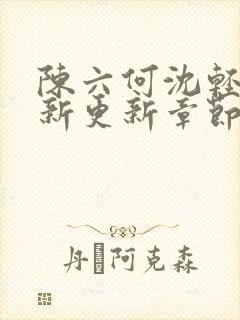 陳六何沈輕
新更新章節
丹 阿克森